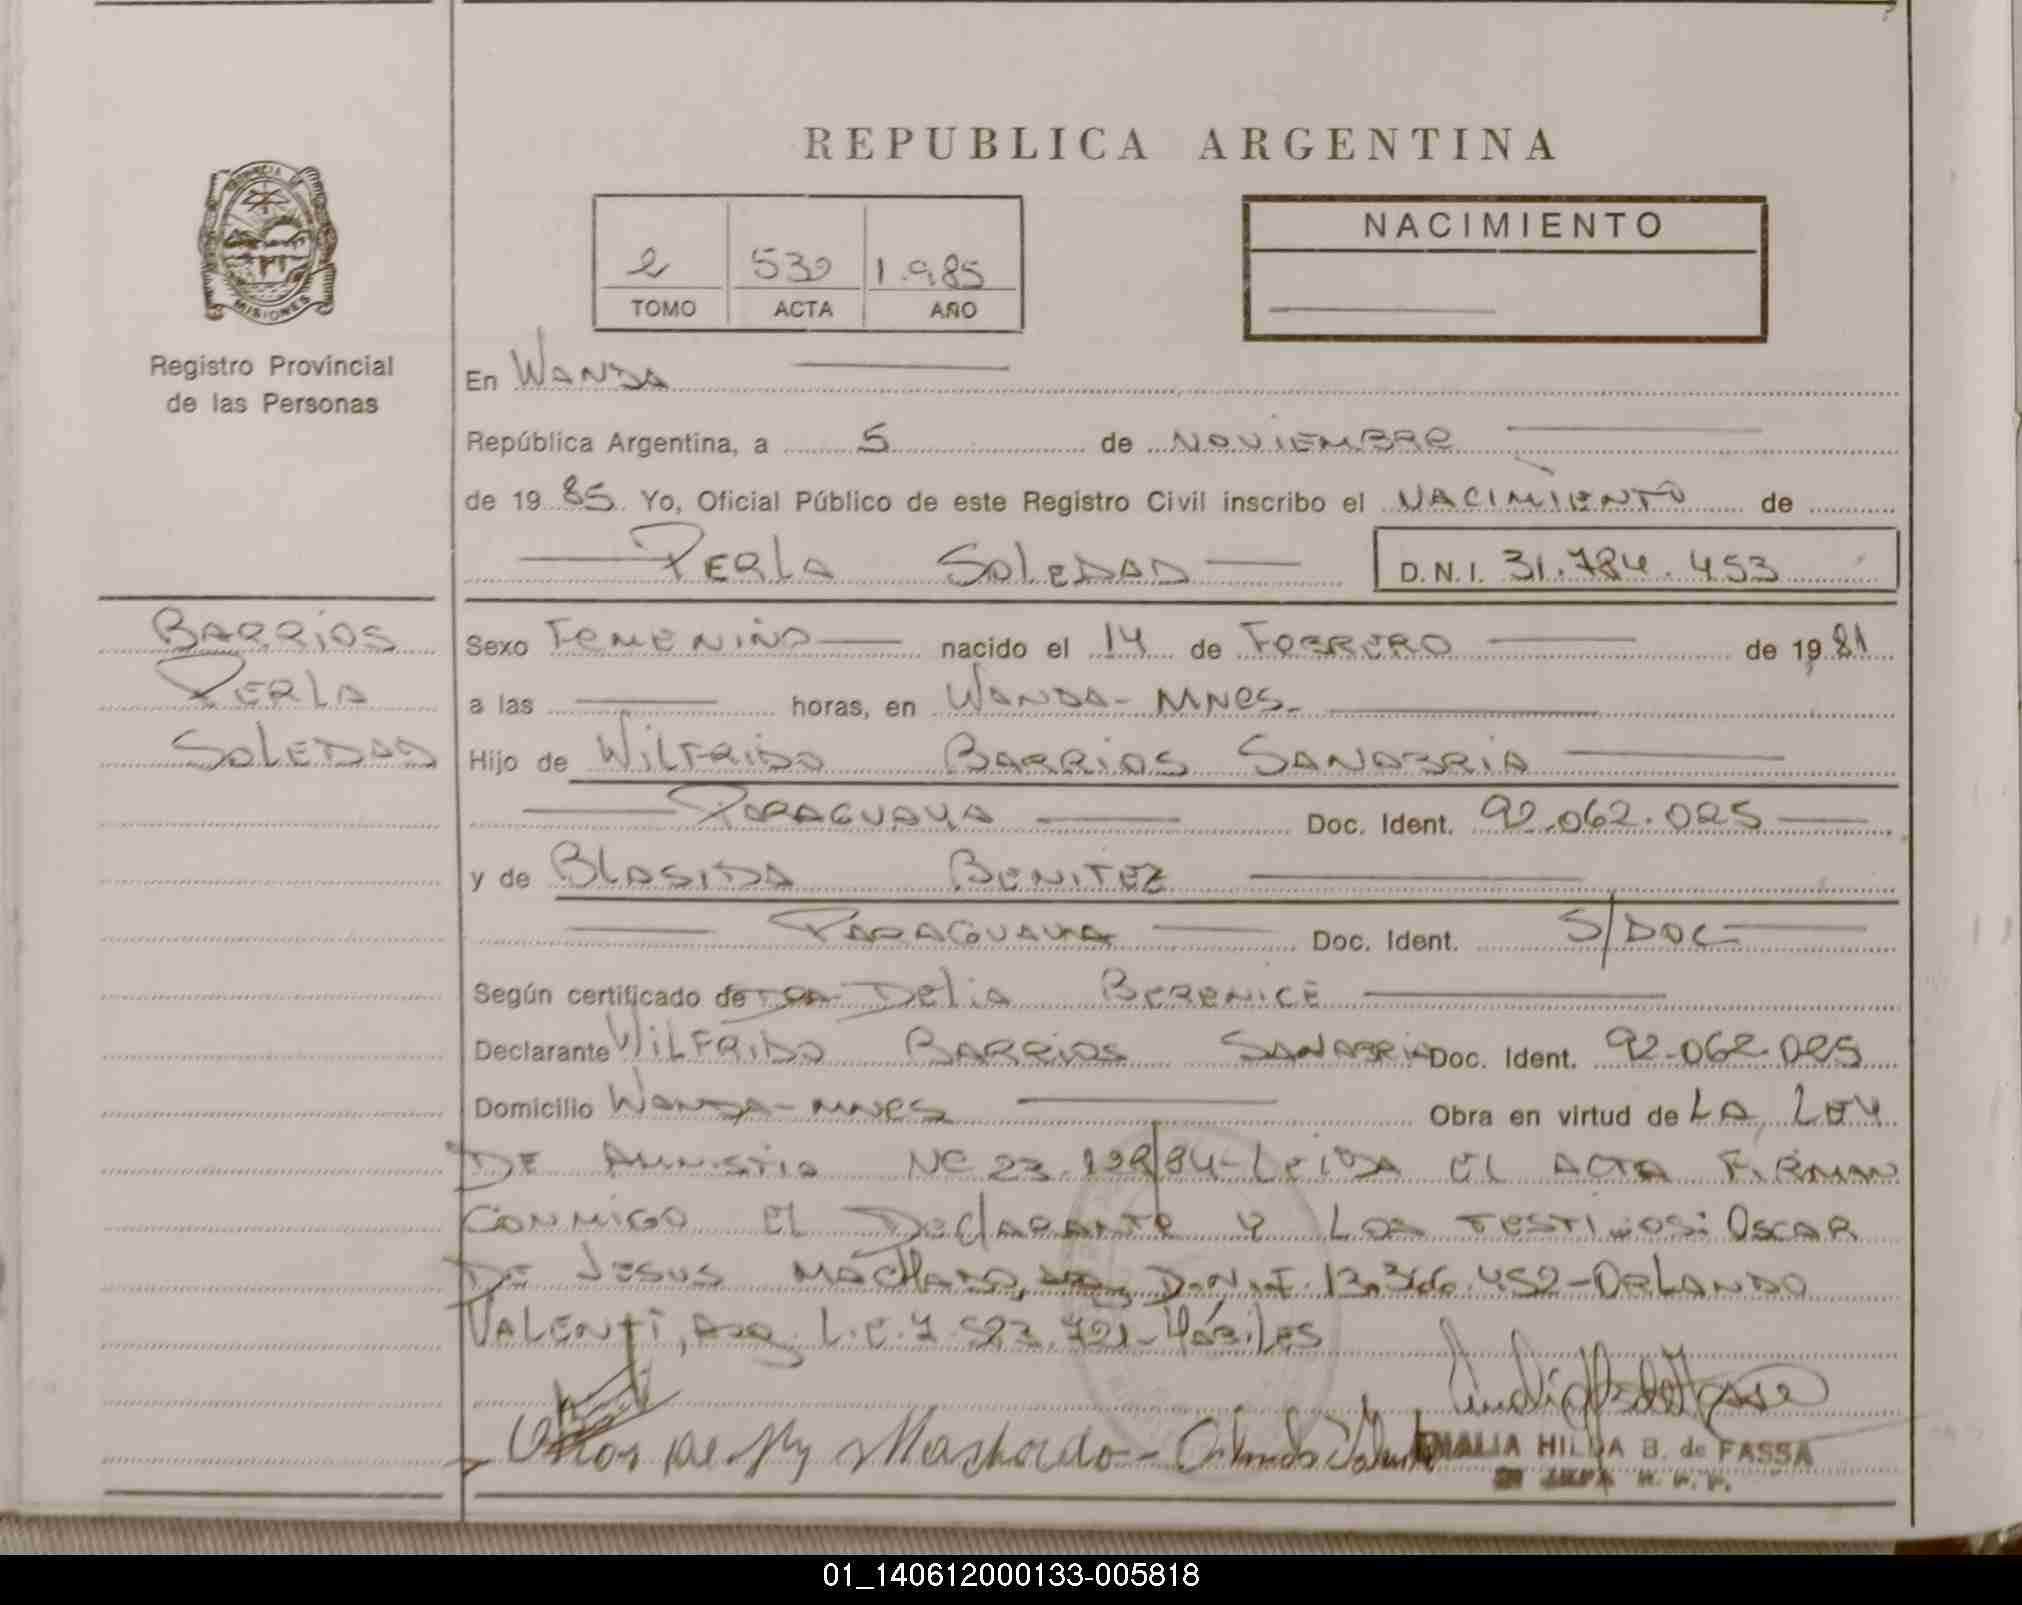 REPUBLICA ARGENTINA
PROVINCIA DE
MISIONES
Registro Provincial
de las Personas
2 530 1.985
TOMO ACTA AÑO
NACIMIENTO
En WANDA
República Argentina, a 5 de NOVIEMBRE
de 19 85 Yo, Oficial Público de este Registro Civil inscribo el NACIMIENTO de
PERLA SOLEDAD D.N.I. 31.784.453
BARRIOS
PERLA
SOLEDAD
Sexo FEMENINO nacido el 14 de FEBRERO de 1981
a las horas, en WANDA - MNES.
Hijo de WILFRIDO BARRIOS SANABRIA
PARAGUAYA Doc. Ident. 92.062.025
y de BLASIDA BENITEZ
PARAGUAYA Doc. Ident. S/DOC
Según certificado de DRA DELIA BERENICE
Declarante WILFRIDO BARRIOS SANABRIA Doc. Ident. 92.062.025
Domicilio WANDA - MNES Obra en virtud de LA LEY
DE AMNISTIA Nº 23.128/84 - LEIDA EL ACTA FIRMAN
CONMIGO EL DECLARANTE Y LOS TESTIGOS: OSCAR
DE JESUS MACHADO, D.N.I. 13.366.452 - ORLANDO
VALENTI, Arg. L.E. 7.523.721 - Hábiles
Machado - Orlando
AMALIA HILDA B. de FASSA
01_140612000133-005818